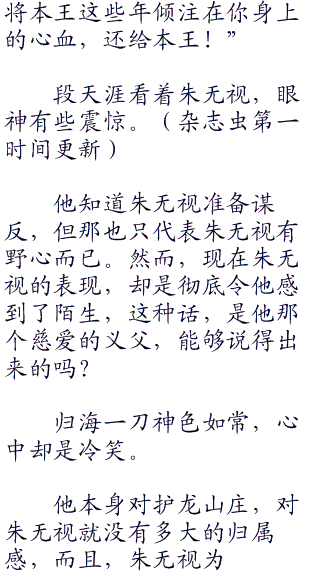 将本王这些年倾注在你身上
的心血，还给本王！”
段天涯看着朱无视，眼
神有些震惊。（杂志虫第一
时间更新）
他知道朱无视准备谋
反，但那也只代表朱无视有
野心而已。然而，现在朱无
视的表现，却是彻底令他感
到了陌生，这种话，是他那
个慈爱的义父，能够说得出
来的吗？
归海一刀神色如常，心
中却是冷笑。
他本身对护龙山庄，对
朱无视就没有多大的归属
感，而且，朱无视为